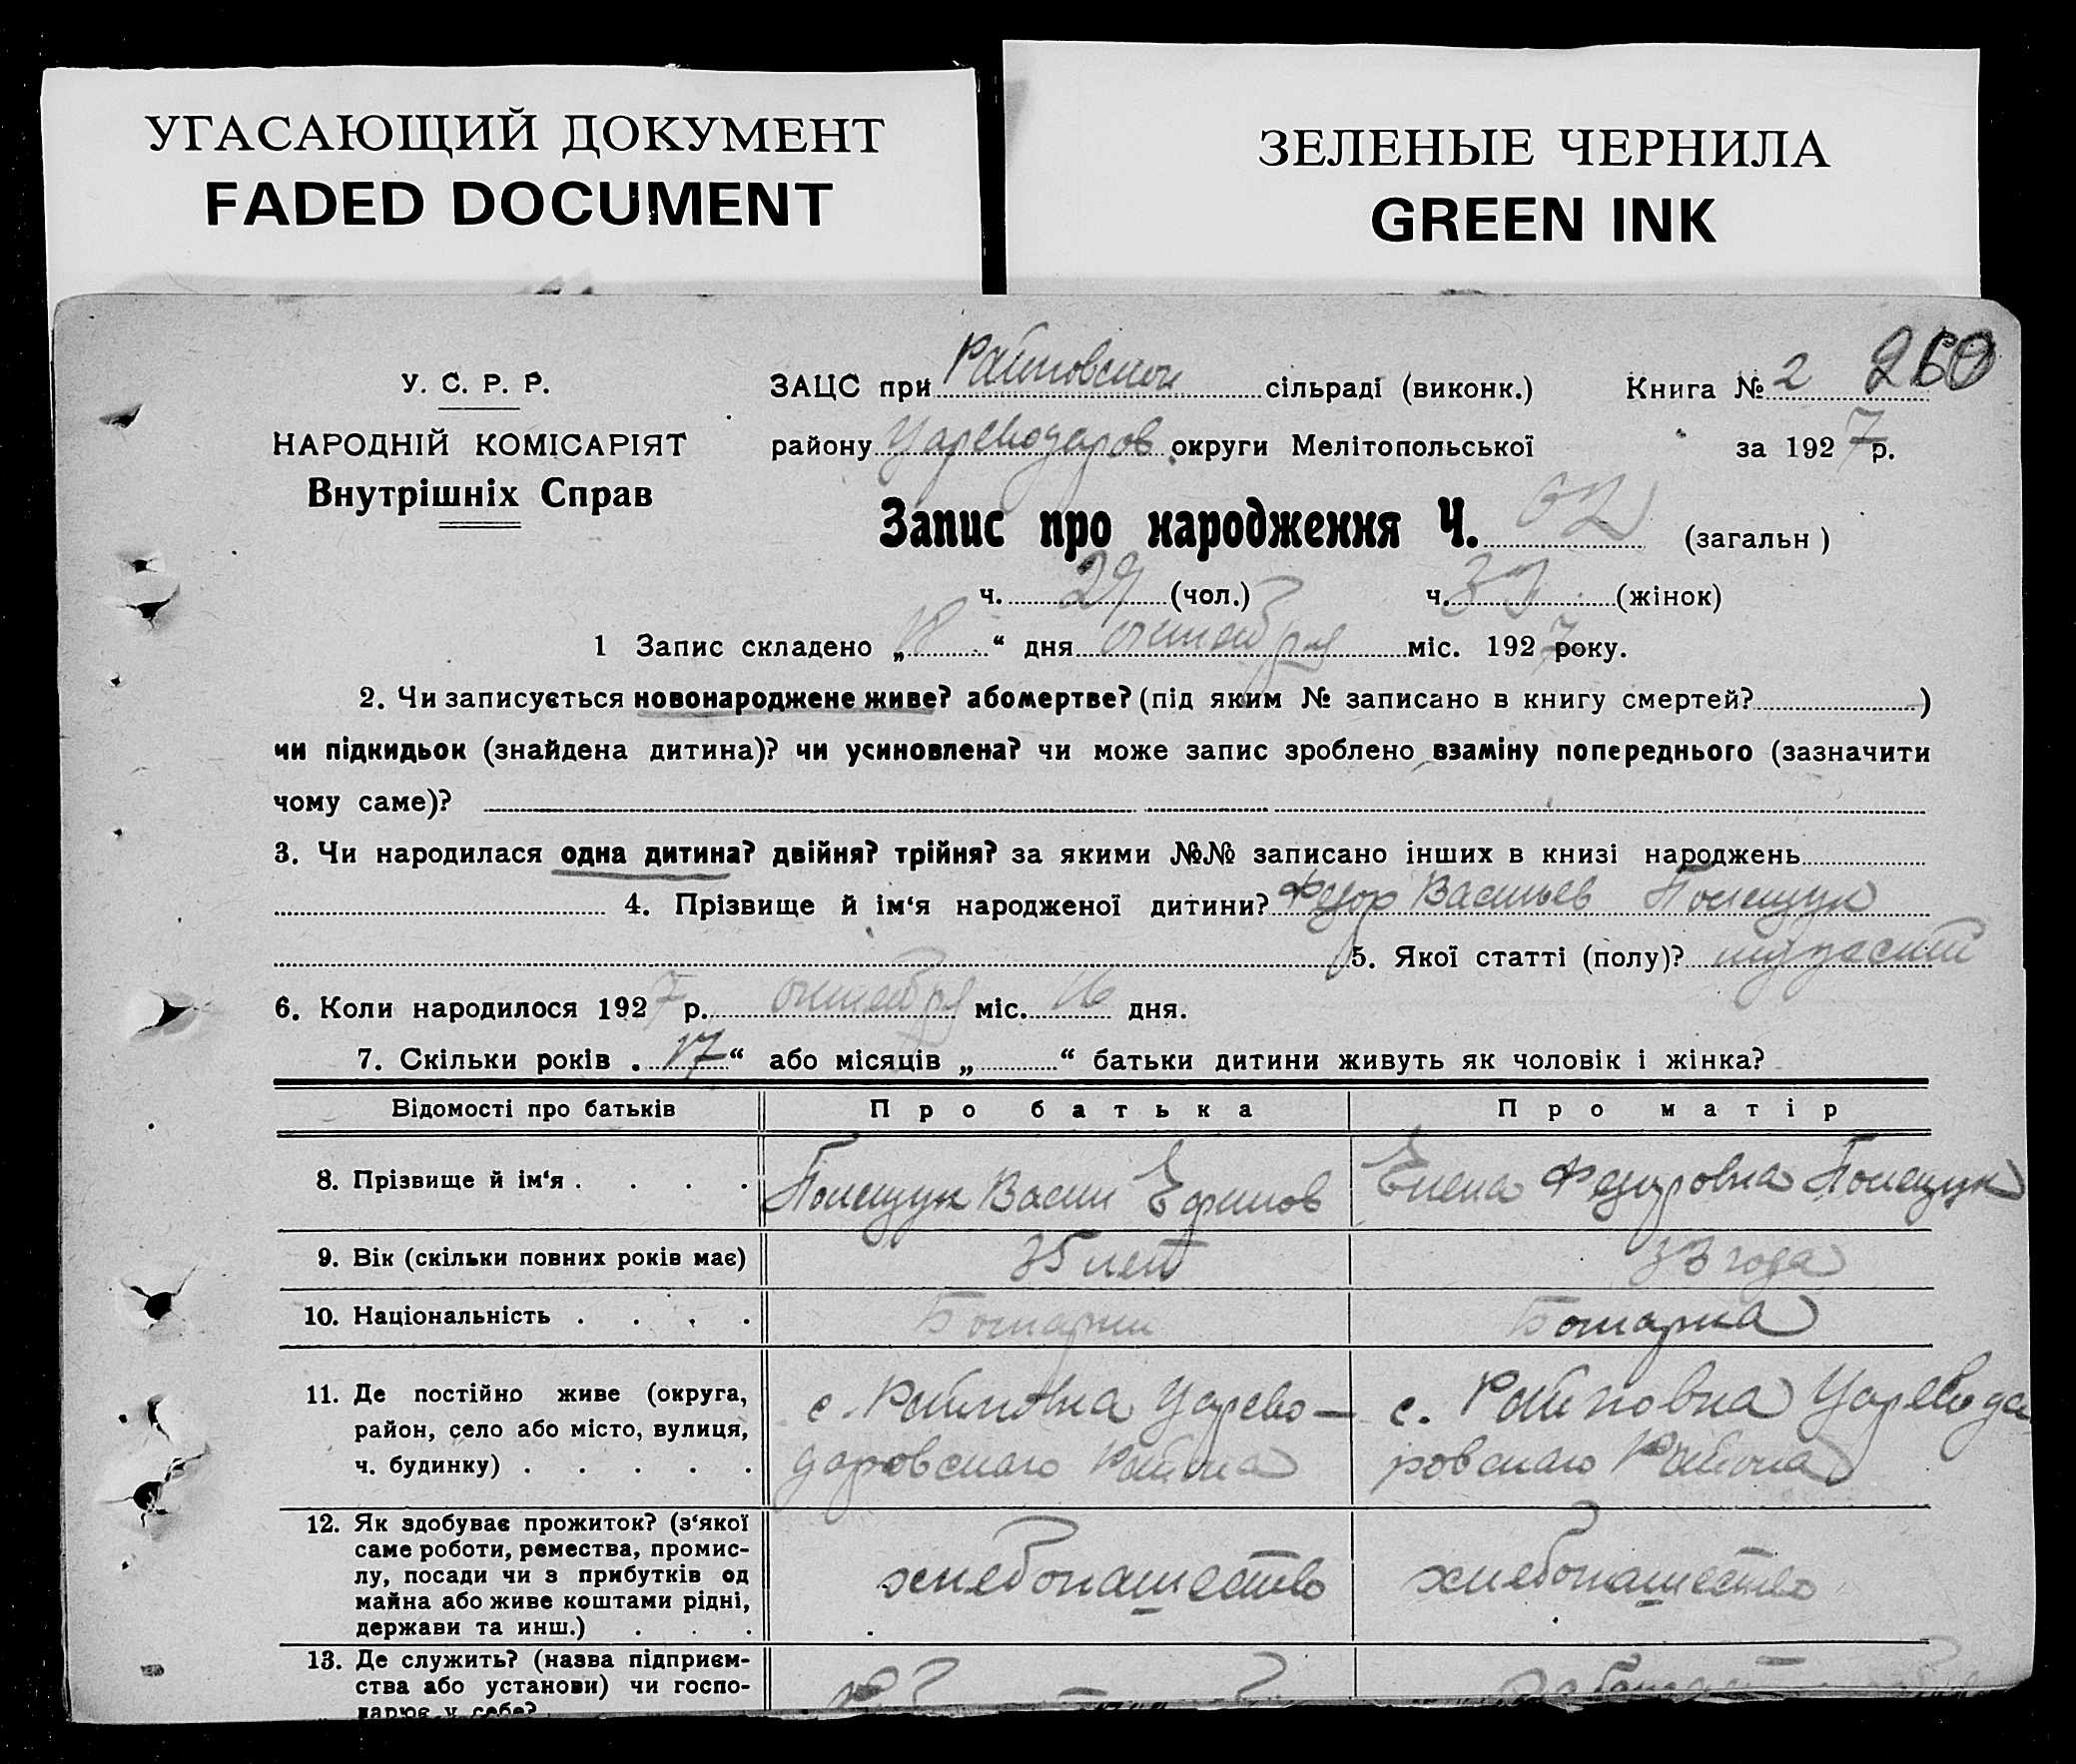 УГАСАЮЩИЙ ДОКУМЕНТ
FADED DOCUMENT
ЗЕЛЕНЫЕ ЧЕРНИЛА
GREEN INK
У. С. Р. Р.
НАРОДНІЙ КОМІСАРІЯТ
Внутрішніх Справ
ЗАЦС при Райновской сільраді (виконк.) Книга № 2 260
району Цареводаров. округи Мелітопольської за 1927 р.
Запис про народження Ч. 62 (загальн )
ч. 29 (чол.) ч. 33 (жінок)
1 Запис складено „ 18 “ дня октября міс. 1927 року.
2. Чи записується новонароджене живе? або мертве? (під яким № записано в книгу смертей? )
чи підкидьок (знайдена дитина)? чи усиновлена? чи може запис зроблено взаміну попереднього (зазначити
чому саме)?
3. Чи народилася одна дитина? двійня? трійня? за якими №№ записано інших в книзі народжень
4. Прізвище й ім‘я народженої дитини? Федор Васильев Полещук
5. Якої статті (полу)? мужеский
6. Коли народилося 1927 р. октября міс. 16 дня.
7. Скільки років . 17 “ або місяців „ “ батьки дитини живуть як чоловік і жінка?
Відомості про батьків Про батька Про матір
8. Прізвище й ім‘я . . . . Полещук Васил Ефимов Елена Федоровна Полещук
9. Вік (скільки повних років має) 35 лет 33 года
10. Національність . . . . Болгарин Болгарка
11. Де постійно живе (округа,
район, село або місто, вулиця,
ч. будинку) . . . . .
с. Райновка Царево-
даровскаго Района
с. Райновка Царевода
ровскаго Района
12. Як здобуває прожиток? (з‘якої
саме роботи, ремества, промис-
лу, посади чи з прибутків од
майна або живе коштами рідні,
держави та инш.) . . .
хлебопашество
хлебопашество
13. Де служить? (назва підприєм-
ства або установи) чи госпо-
дарює у себе?